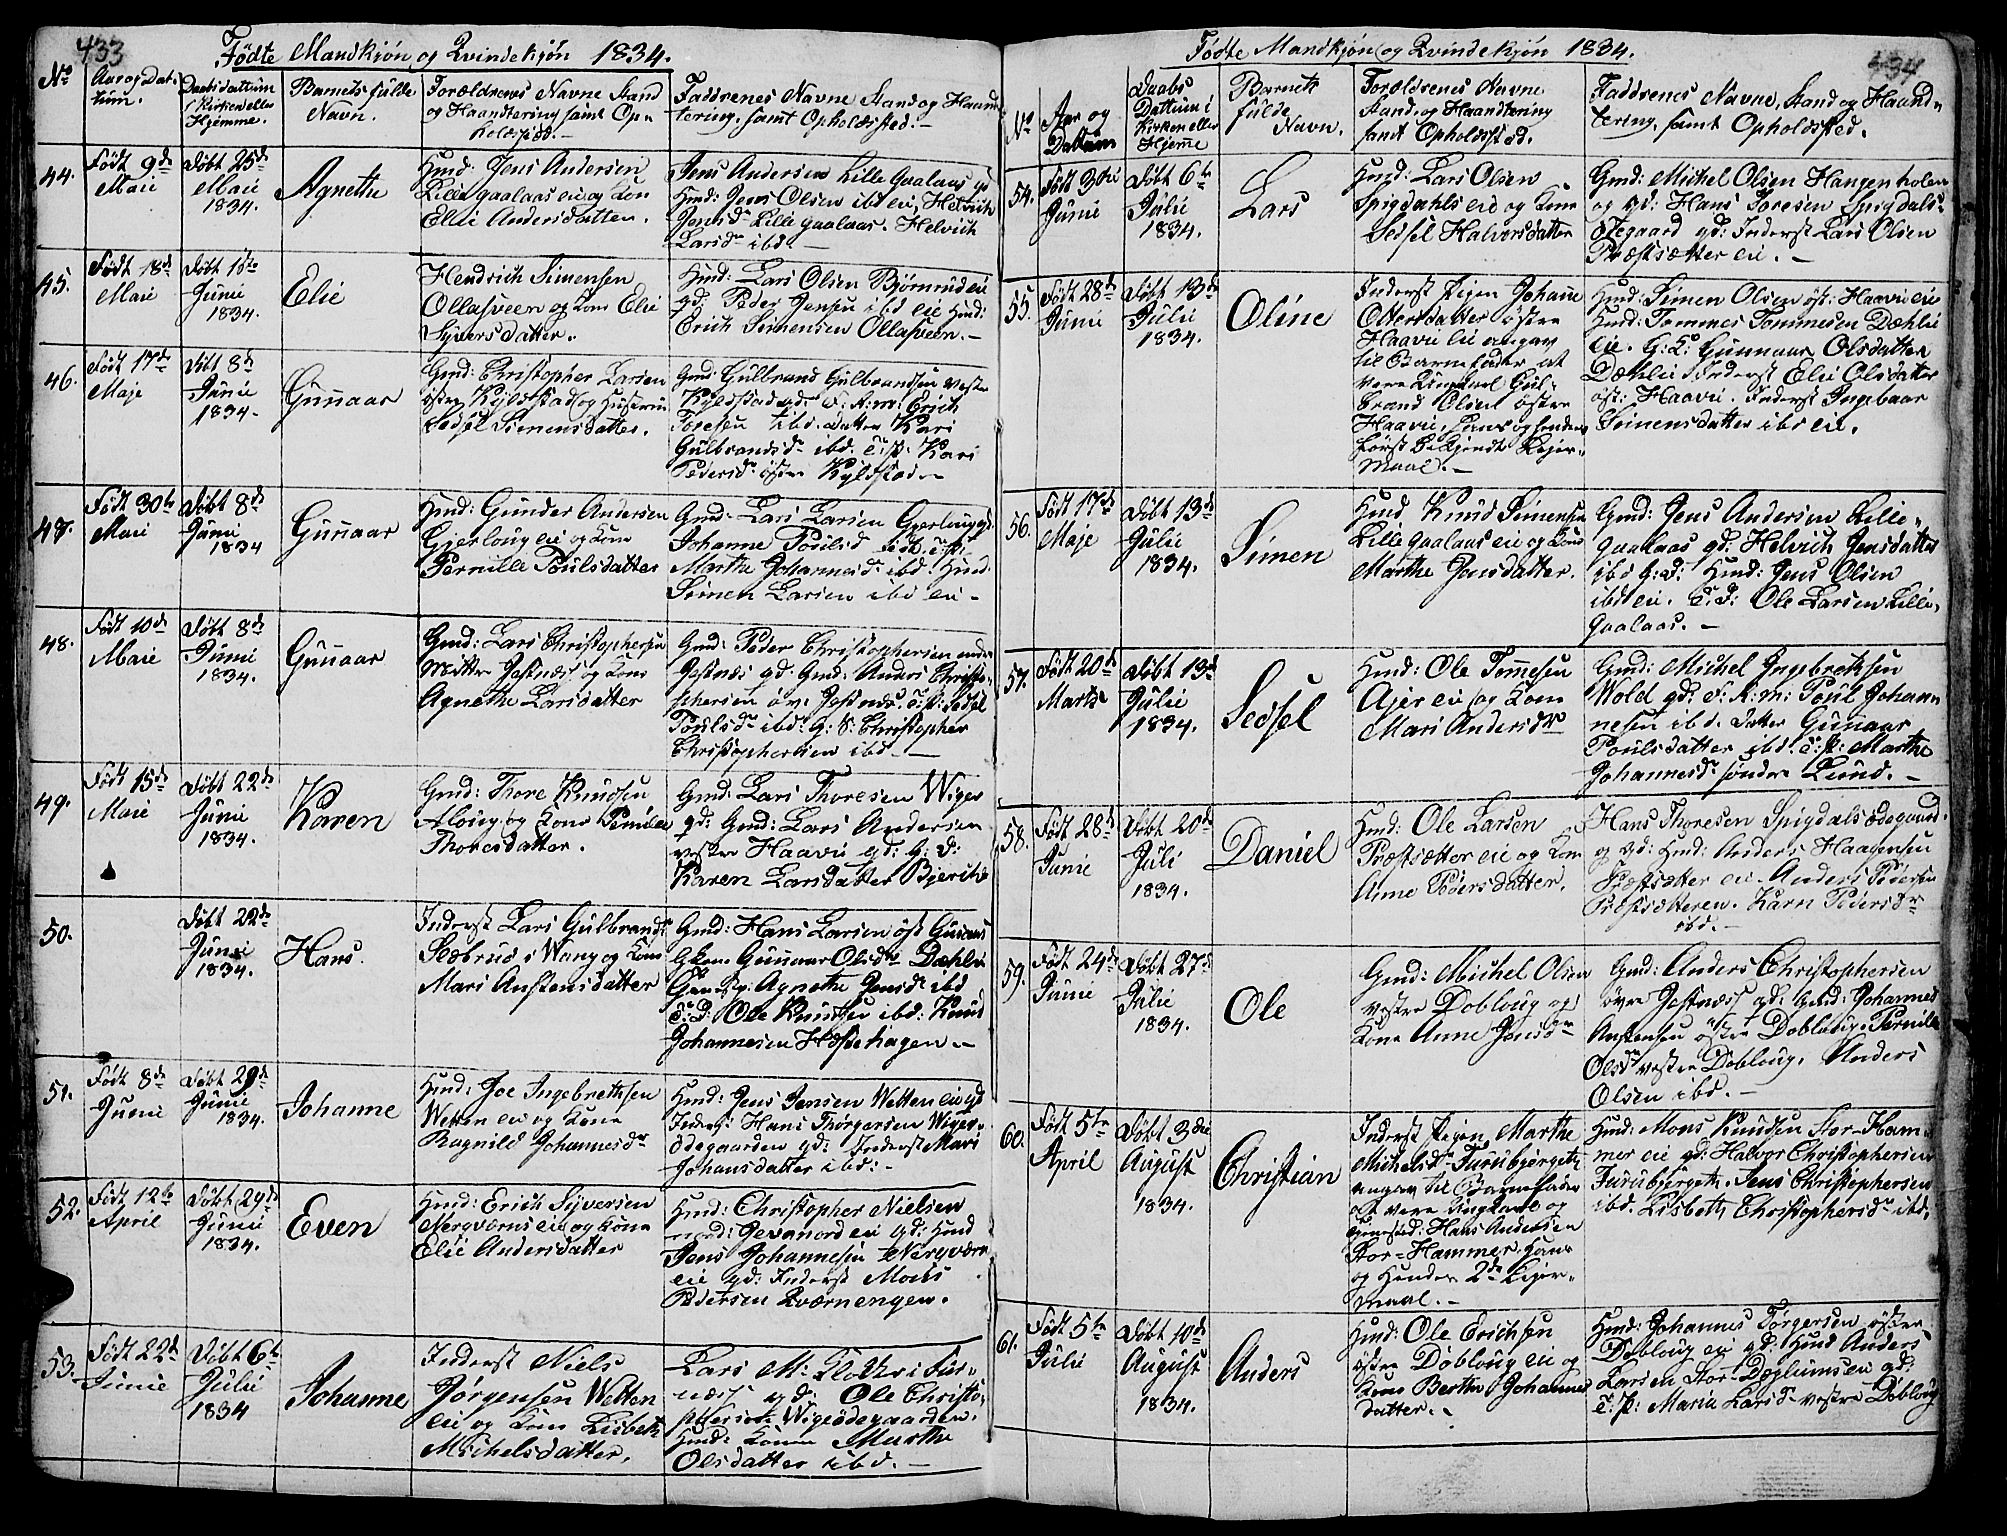 433
Fødte Mandkjøn og Qvindekjøn 1834.
No
Aar og Dat-
tum.
Daabsdattum
i Kirken eller
Hjemme.
Barnets fulde
Navn.
Forældrenes Navne Stand
og Haandtering samt Op-
holdssted.-
Faddrenes Navne Stand og Haand
tering, samt Opholdssted.-
44.
Født 9de
Maii
Døbt 25de
Maii
1834.
Agnethe
Hmd: Jens Andersen
Lille gaalaas eie og Kone
Elie Andersdatter.
Jens Andersen Lille Gaalaas gd
Hmd: Jens Olsen ibd eie, Helvich
Jensd Lille gaalaas. Helvich
Larsdr ibd.-
45.
Født 18de
Maii
Døbt
Junii
1834.
Elie
Hendrich Simensen
Ollasveen og Kone Elie
Syversdatter.
Hmd: Lars Olsen Bjørnrud eie
gd: Peder Jensen ibd eie Hmd:
Erich Simensen Ollasveen.-
46.
Født 17de
Maje
Døbt 8de
Junii
1834.
Gunnaar
Gmd: Christopher Larsen
østre Kyldstad og Hustrue
Sedsel Simensdatter.
Gmd: Gulbrand Gulbrandsen vestre
Kyldstad gd: F:K:m: Erich
Toresen ibd. datter Kari
Gulbrandsd ibd. T:p: Kari
Pedersd østre Kyldstad-
47.
Født 30te
Maii
Døbt 8de
Junii
1834
Gunnaar
Hmd: Gunder Andersen
Gjerloug eie og Kone
Pernille Poulsdatter
Gmd: Lars Larsen Gjerloug gd:
Johanne Poulsd ibd T:p:
Marthe Johannesd ibd. Hmd:
Simen Larsen ibd eie-
48.
Født 10de
Maii
Døbt 8de
Junii
1834.
Gunnaar
Gmd: Lars Christophersen
Jestnæs og Kone
Agnethe Larsdatter
Gmd: Peder Christophersen
Jestnæs gd Gmd: Anders Christo-
phersen øv: Jestnæs. T:p: Sedsel
Poulsdr ibd: G:S: Christopher
Christophersen ibd.-
49.
Født 15de
Maii
Døbt 22de
Junii
1834.
Karen
Gmd: Thore Knudsen
Aloug og Kone Pernille
Thoresdatter.
Gmd: Lars Thoresen Wiger
gd: Gmd: Lars Andersen
vestre Haavie gd: G:D:
Karen Larsdatter Bjerche
50.
Døbt 22de
Junii
1834.
Hans.
Inderst Lars Gulbrands
Slæbrud i Wang og Kone
Mari Anstensdatter
Gmd: Hans Larsen øst
Gunnaar Olsdr Dæhlie
Agnethe Jensdr ibd
T:D: Ole Knudsen ibd: Knud
Johannesen Hæstehagen.-
51.
Født 8de
Junii
Døbt 29de
Junii
1834.
Johanne
Hmd: Joe Ingebrethsen
Wetten eie og Kone
Ragnild Johannesdr
Hmd: Jens Jensen Wetten eie gd
Inderst Hans Thørgersen Wiger-
ødegaarden gd: Inderst Mari
Johansdatter ibd:-
52.
Født 12te
April
Døbt 29de
Junii
1834.
Even
Hmd: Erich Syversen
Nergværns eie og Kone
Elie Andersdatter
Hmd: Christopher Nielsen
Jevanord eie gd: Hmd
Jens Johannesen Nergværn
eie gd: Inderst Mons
Pedersen Qværnengen.
53.
Født 22de
Junie
Døbt 6te
Julii
1834
Johanne
Inderst Niels
Jørgensen Wetten
eie og Kone Lisbeth
Michelsdatter.
Lars M: Kloth i Fur-
næss gd: Ole Christo-
phersen Wigerødegaarden.
Hmd: Konen Marthe
Olsdatter ibd.-
434
Fødte Mandkjøn og Qvindekjøn 1834.
No
Aar og
Dattum
Daabs
Dattum i
Kirken eller
Hjeme
Barnets
fulde
Navn.
Foreldrenes Navne
Stand og Haandtering
samt Opholdssted.
Faddrenes Navne, Stand og Haand-
tering, samt Opholdssted.
54.
Født 3die
Junii
Døbt 6te
Julii
1834.
Lars
Hmd: Lars Olsen
Spigdahls eie og Kone
Sedsel Halvorsdatter
Gmd: Michel Olsen Hangenholen
og gd: Hans Toresen Spigdals-
ødegaard gd: Inderst Lars Olsen
Præstsætter eie.-
55.
Født 28de
Junii
Døbt 13de
Julii
1834.
Oline
Inderst Pigen Johane
Ottersdatter østre
Haavie eie angav
til Barnefader at
være Ungkarl Gul-
brand Olsen østre
Haavie, hans og hendes
første bekjendte Lejer-
maal.-
Hmd: Simen Olsen øst: Haavie eie
Hmd: Tommes Tommesen Dæhlie
eie. G:K: Gunnaar Olsdatter
Dæhlie Inderst Elie Olsdatter
øst: Haavie. Inderst Ingebaar
Simensdatter ibd eie.
56.
Født 17de
Maje
Døbt 13de
Julii
1834.
Simen
Hmd Knud Simensen
Lille gaalaas eie og Kone
Marthe Jensdatter.
Gmd: Jens Andersen Lille-
gaalaas gd: Helvich Jensdatter
ibd G:D: Hmd: Jens Olsen
ibd eie. T:D: Ole Larsen Lille-
gaalaas.-
57.
Født 20de
Marts
Døbt 13de
Julii
1834.
Sedsel
Hmd: Ole Tomesen
Ajer eie og Kone
Mari Andersdr
Gmd: Michel Ingebrethsen
Wold gd: F:K:m: Poul Johan
nesen ibd. Datter Gunaar
Poulsdatter ibd. T:p: Marthe
Johannesdr søndre Lund.-
58.
Født 28de
Junii
Døbt 20de
Juli
1834.
Daniel
Hmd: Ole Larsen
Præstsætter eie og Kone
Anne Pedersdatter.
Hans Thoresen Spigdalsødegaard
og gd: Hmd: Anders Haagensen
Præstsætter eie. Anders Pedersen
Præstsætteren. Karn Pedersdr
ibd.-
59.
Født 24de
Junii
Døbt 27de
Julii
1834.
Ole
Gmd: Michel Olsen
vestre Dobloug og
Kone Anne Jensdr
Gmd: Anders Christophersen
øvre Jestnæs gd: Gmd: Johannes
Anstensen østre Dobloug. Pernille
Olsdr vestre Dobloug. Anders
Olsen ibd.-
60.
Født 5te
April
Døbt 3die
August
1834.
Christian
Inderst Pigen Marthe
Michelsd Furubjerget
angav til Barnefader
at være Ungkarl og
Hans Andersen
Stor-Hammer, hans
og hendes 2de Lejer-
maal.-
Hmd: Mons Knudsen Stor-Ham-
mer eie gd: Halvor Christophersen
Furubjerget. Jens Christophersen
ibd. Lisbeth Christophersdr ibd.
61.
Født 5te
Julii
Døbt 10de
August
1834.
Anders
Hmd: Ole Erichsen
østre Dobloug eie og
Kone Berthe Johannes
datter.
Hmd: Johannes Tørgersen østre
Dobloug eie gd: Hmd Anders
Larsen Stor-Døglumseie gd:
T:p: Maria Larsdr vestre Dobloug